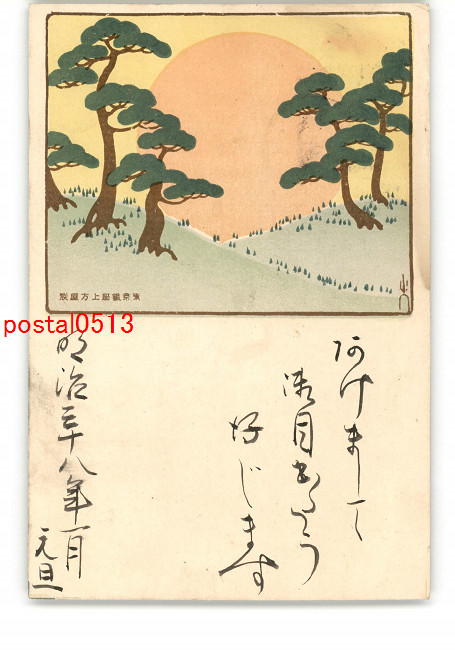 東京銀座上方屋製
postal0513
阿けまして
御目出たう
好じます
明治三十八年一月
元旦